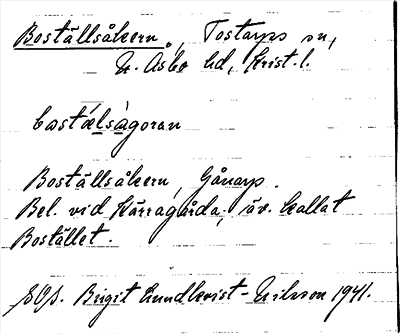 Boställsåkern, Tostarps sn,
N. Åsbo hd, Krist. l.
bastǽlsàgoran
Boställsåkern, Gånarp.
Bel. vid Kärragårda; äv. kallat
Bostället.
Birgit Lundkvist-Nilsson 1941.